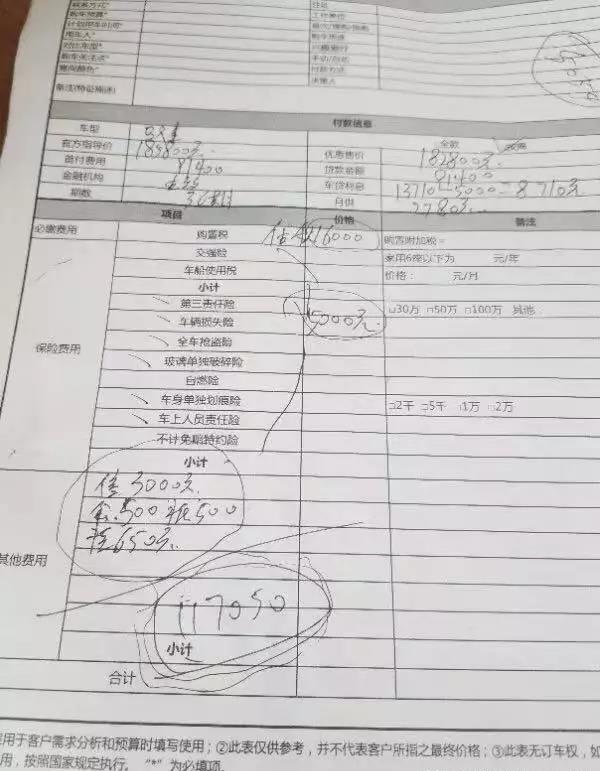 联系方式*
购车预算*
计划用车时间*
用车人*
对比车型*
购车关注点*
意向颜色*
备注(特征描述)
付款信息
车型
全款 按揭
官方指导价 188800元 优惠售价 182800元
首付费用 81400 贷款金额 81400
金融机构 车贷利息 13710-5000=8710元
期数 36期 月供 2780元
项目 价格 备注
必缴费用 购置税 16000 购置附加税=
交强险 家用6座以下为 元/年
车船使用税 价格: 元/月
小计
保险费用 第三责任险 5000元 □30万 □50万 □100万 其他
车辆损失险
全车抢盗险
玻璃单独破碎险
自燃险
车身单独划痕险 □2千 □5千 □1万 □2万
车上人员责任险
不计免赔特约险
小计
其他费用
3000元
500 500
650元
117050
小计
合计
用于客户需求分析和预算时填写使用;②此表仅供参考,并不代表客户所指之最终价格;③此表无订车权,如
用,按照国家规定执行。 "*"为必填项